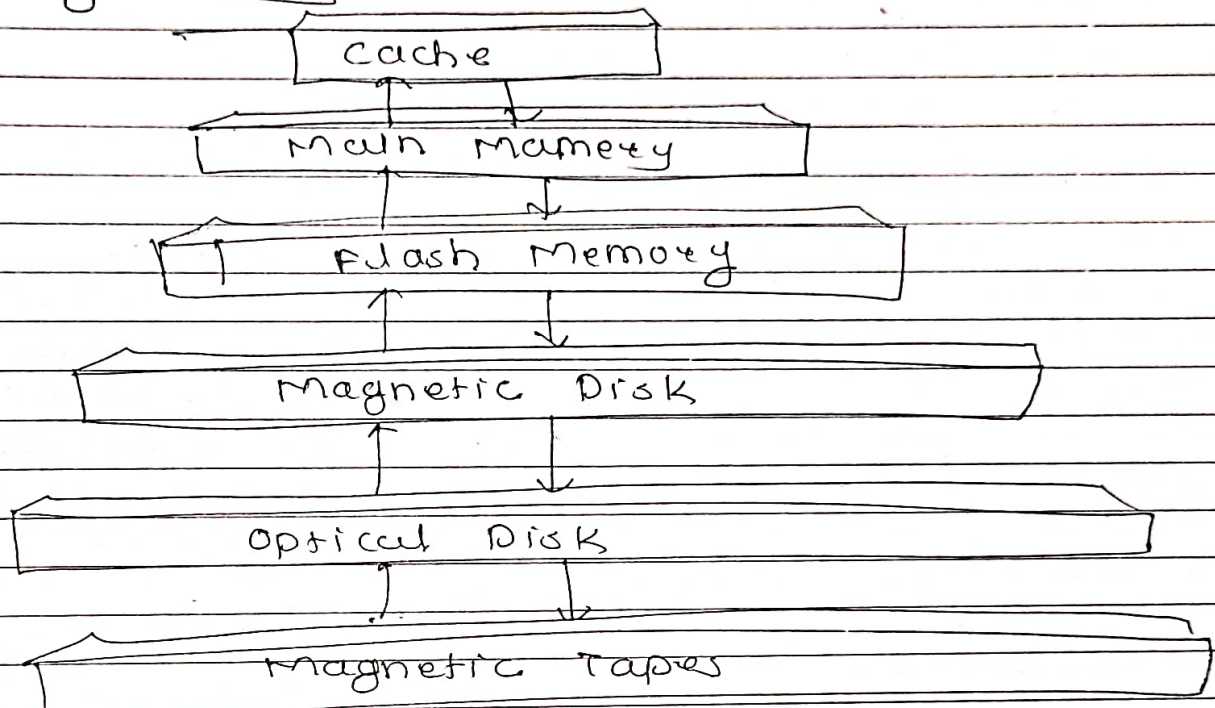 Cache
Main Mamery
Flash Memory
Magnetic Disk
Optical Disk
Magnetic Tapes